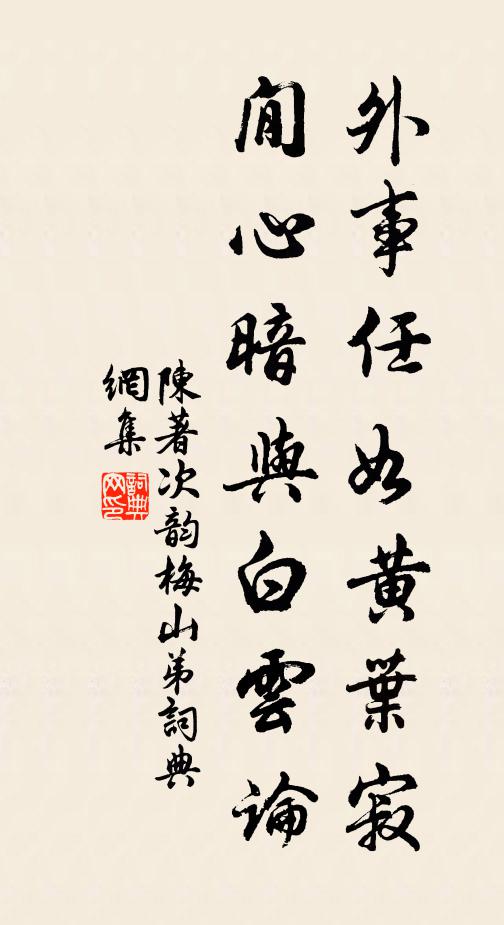 外事任如黃葉寂
閒心暗與白雲論
陳著次韵梅山弟詞典
網集
詞典
网印